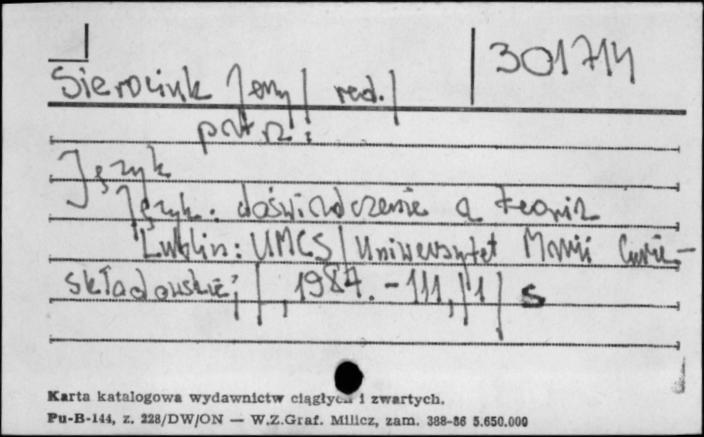 301714
Sierociuk Jerzy / red. /
patrz:
Język
Język: doświadczenie a teoria
Lublin: UMCS / Uniwersytet Marii Curie-
Skłodowskiej /, 1987. - 111, /1/ s
Karta katalogowa wydawnictw ciągłych i zwartych.
Pu-B-144, z. 228/DW/ON — W.Z.Graf. Milicz, zam. 388-86 5.650.000